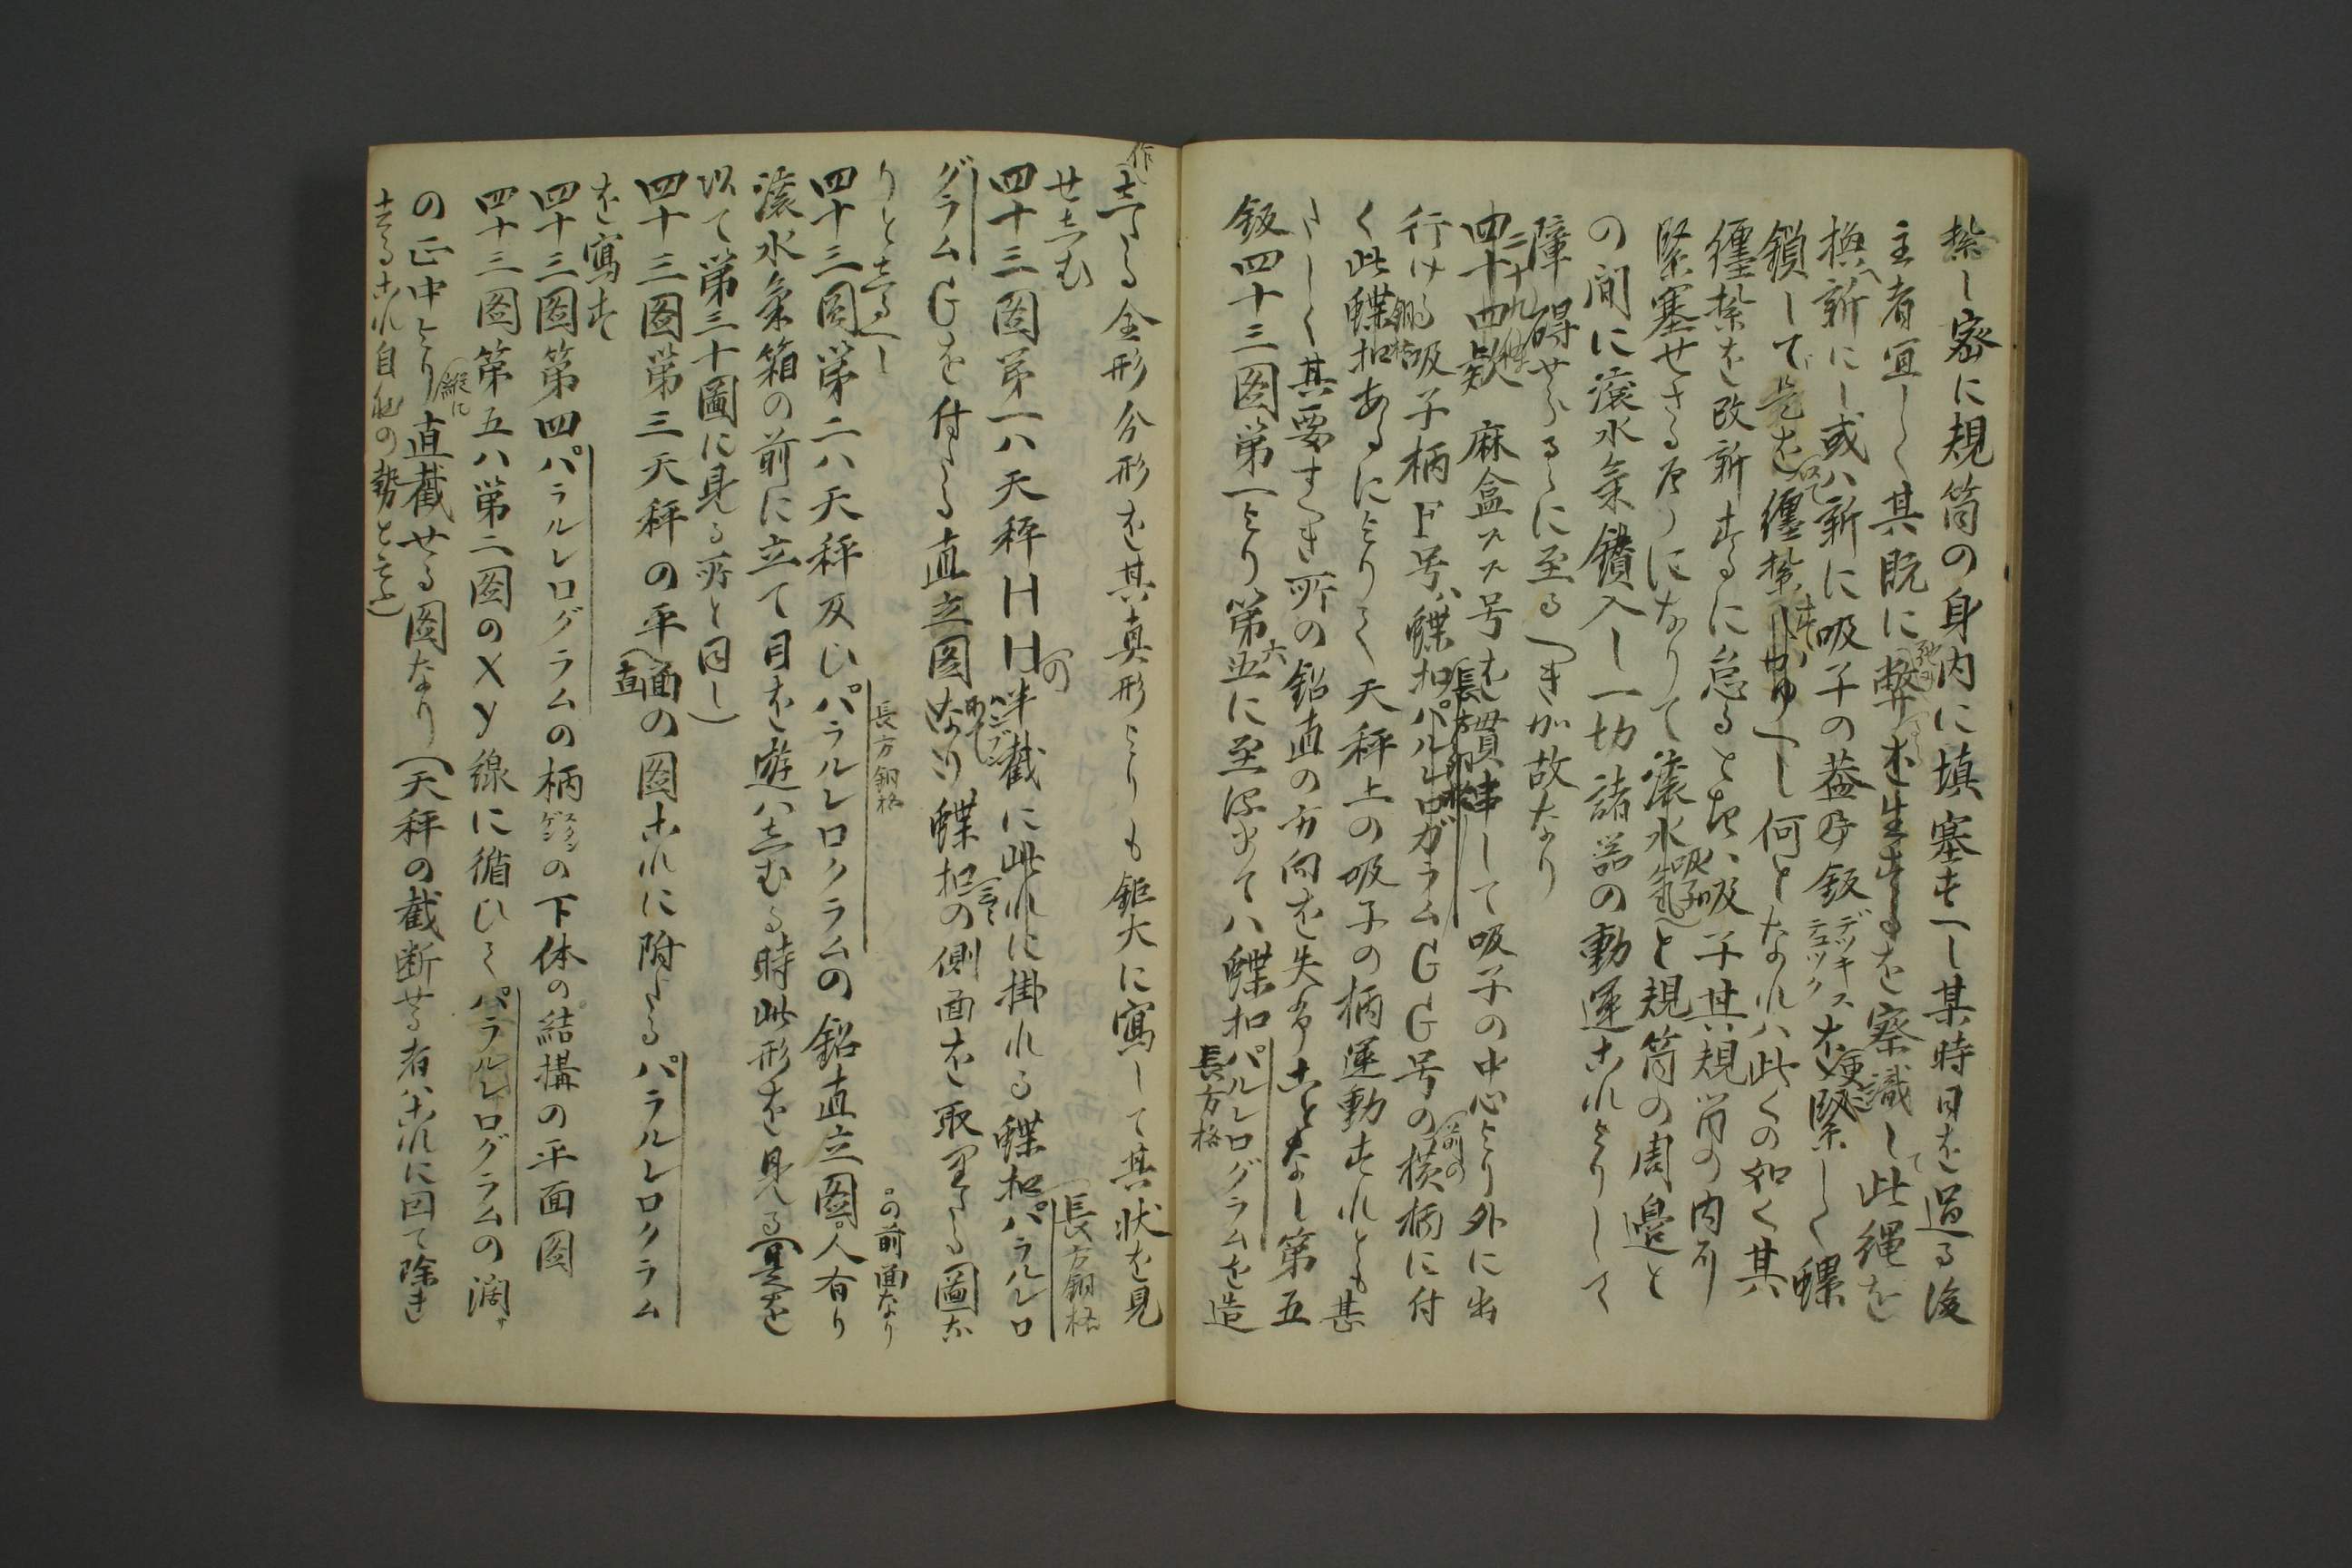 紮し密に規筒の身内に填塞すへし某時日を過る後
主者宜しく其既に弊を生するを察識して此縄を
換へ新にし或ハ新に吸子の蓋の鈑デッキスチュックを緊しく螺
鎖して是を纏紮すへし何となれハ此くの如く其
纏紮を改新するに怠るときハ吸子其規筒の内所
緊塞せさる様うになりて滾水氣と規筒の周邉と
の间に滾水氣鑽入し一切諸器の動運これよりして
障碍せらるゝに至るへきか故なり
四十四款 麻盒ススス号を貫串して吸子の中心より外に出
行ける吸子柄F号ハ蝶扣パルレロガラムGG号の横柄に付
く此蝶扣あるによりて天秤上の吸子の柄運動すれとも甚
しく其要すへき所の鉛直の方向を失ふことなし第五
鈑四十三図第一より第六に至るまてハ蝶扣パルレログラムを造
長方格
作する全形分形を其真形よりも鉅大に寫して其状を見
せしむ
四十三図第一ハ天秤HHの半截に此れに掛れる蝶扣パラルレロ
長方銅格
グラムGを付たる直立図なり蝶扣の側面を取里たる圖な
りとすへし
四十三図第二ハ天秤及ひパラルレロクラムの鉛直立圖人有り
長方銅格
の前面なり
滾水氣箱の前に立て目を遊ハしむる時此形を見る
以て第三十圖に見る所と同し)
四十三図第三天秤の平面の図これに附たるパラルレロクラム
を寫す
四十三図第四パラルレログラムの柄の下体の結構の平面図
四十三図第五ハ第二図のXy線に循ひてパラルレログラムの濶サ
の正中より縦に直截せる図なり(天秤の截断せる者ハこれに因て除き
去るこれ自他の勢と云ふ)